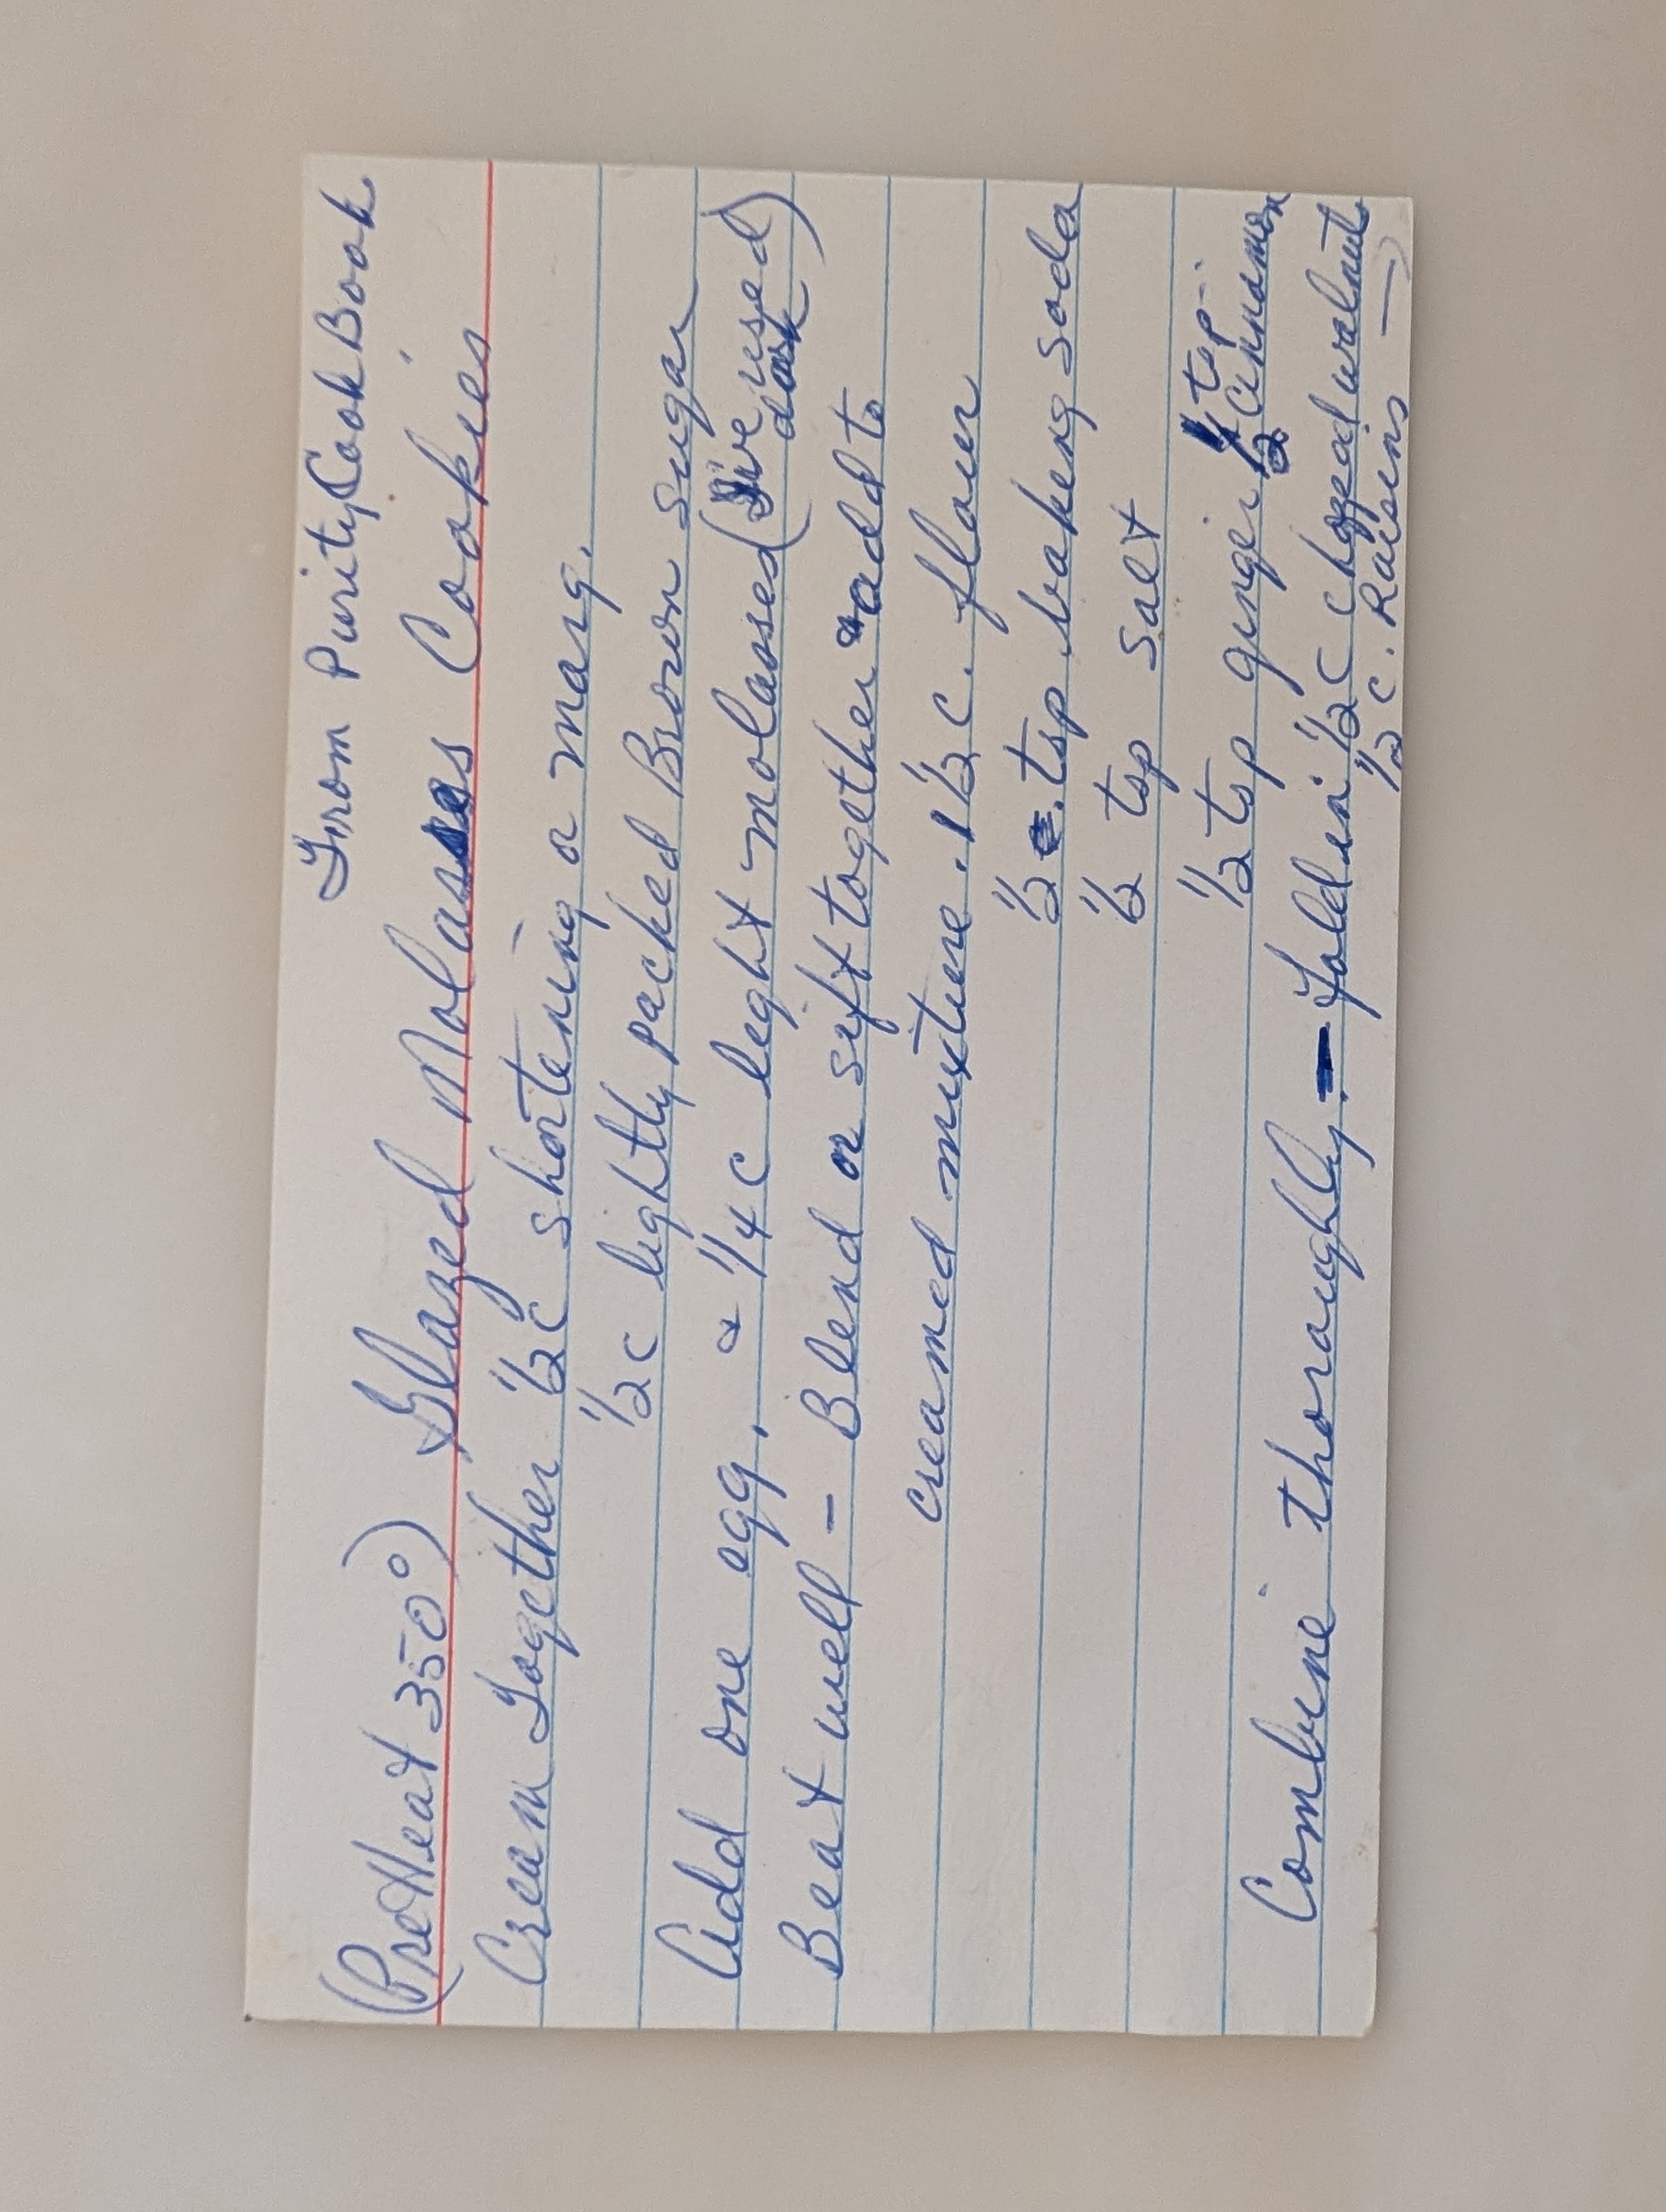 From Purity Cook Book
(PreHeat 350°) Glazed Molasses Cookies
Cream Together ½ c shortening or marg.
½ c lightly packed Brown sugar
Add one egg, & ¼ c light molasses (I've used dark)
Beat well - Blend or sift together & add to
creamed mixture. 1½ c. flour
½ tsp baking soda
½ tsp salt
½ tsp ginger ½ tsp Cinnamon
Combine thoroughly. - Fold in ½ c chopped walnuts
½ c. Raisins —)